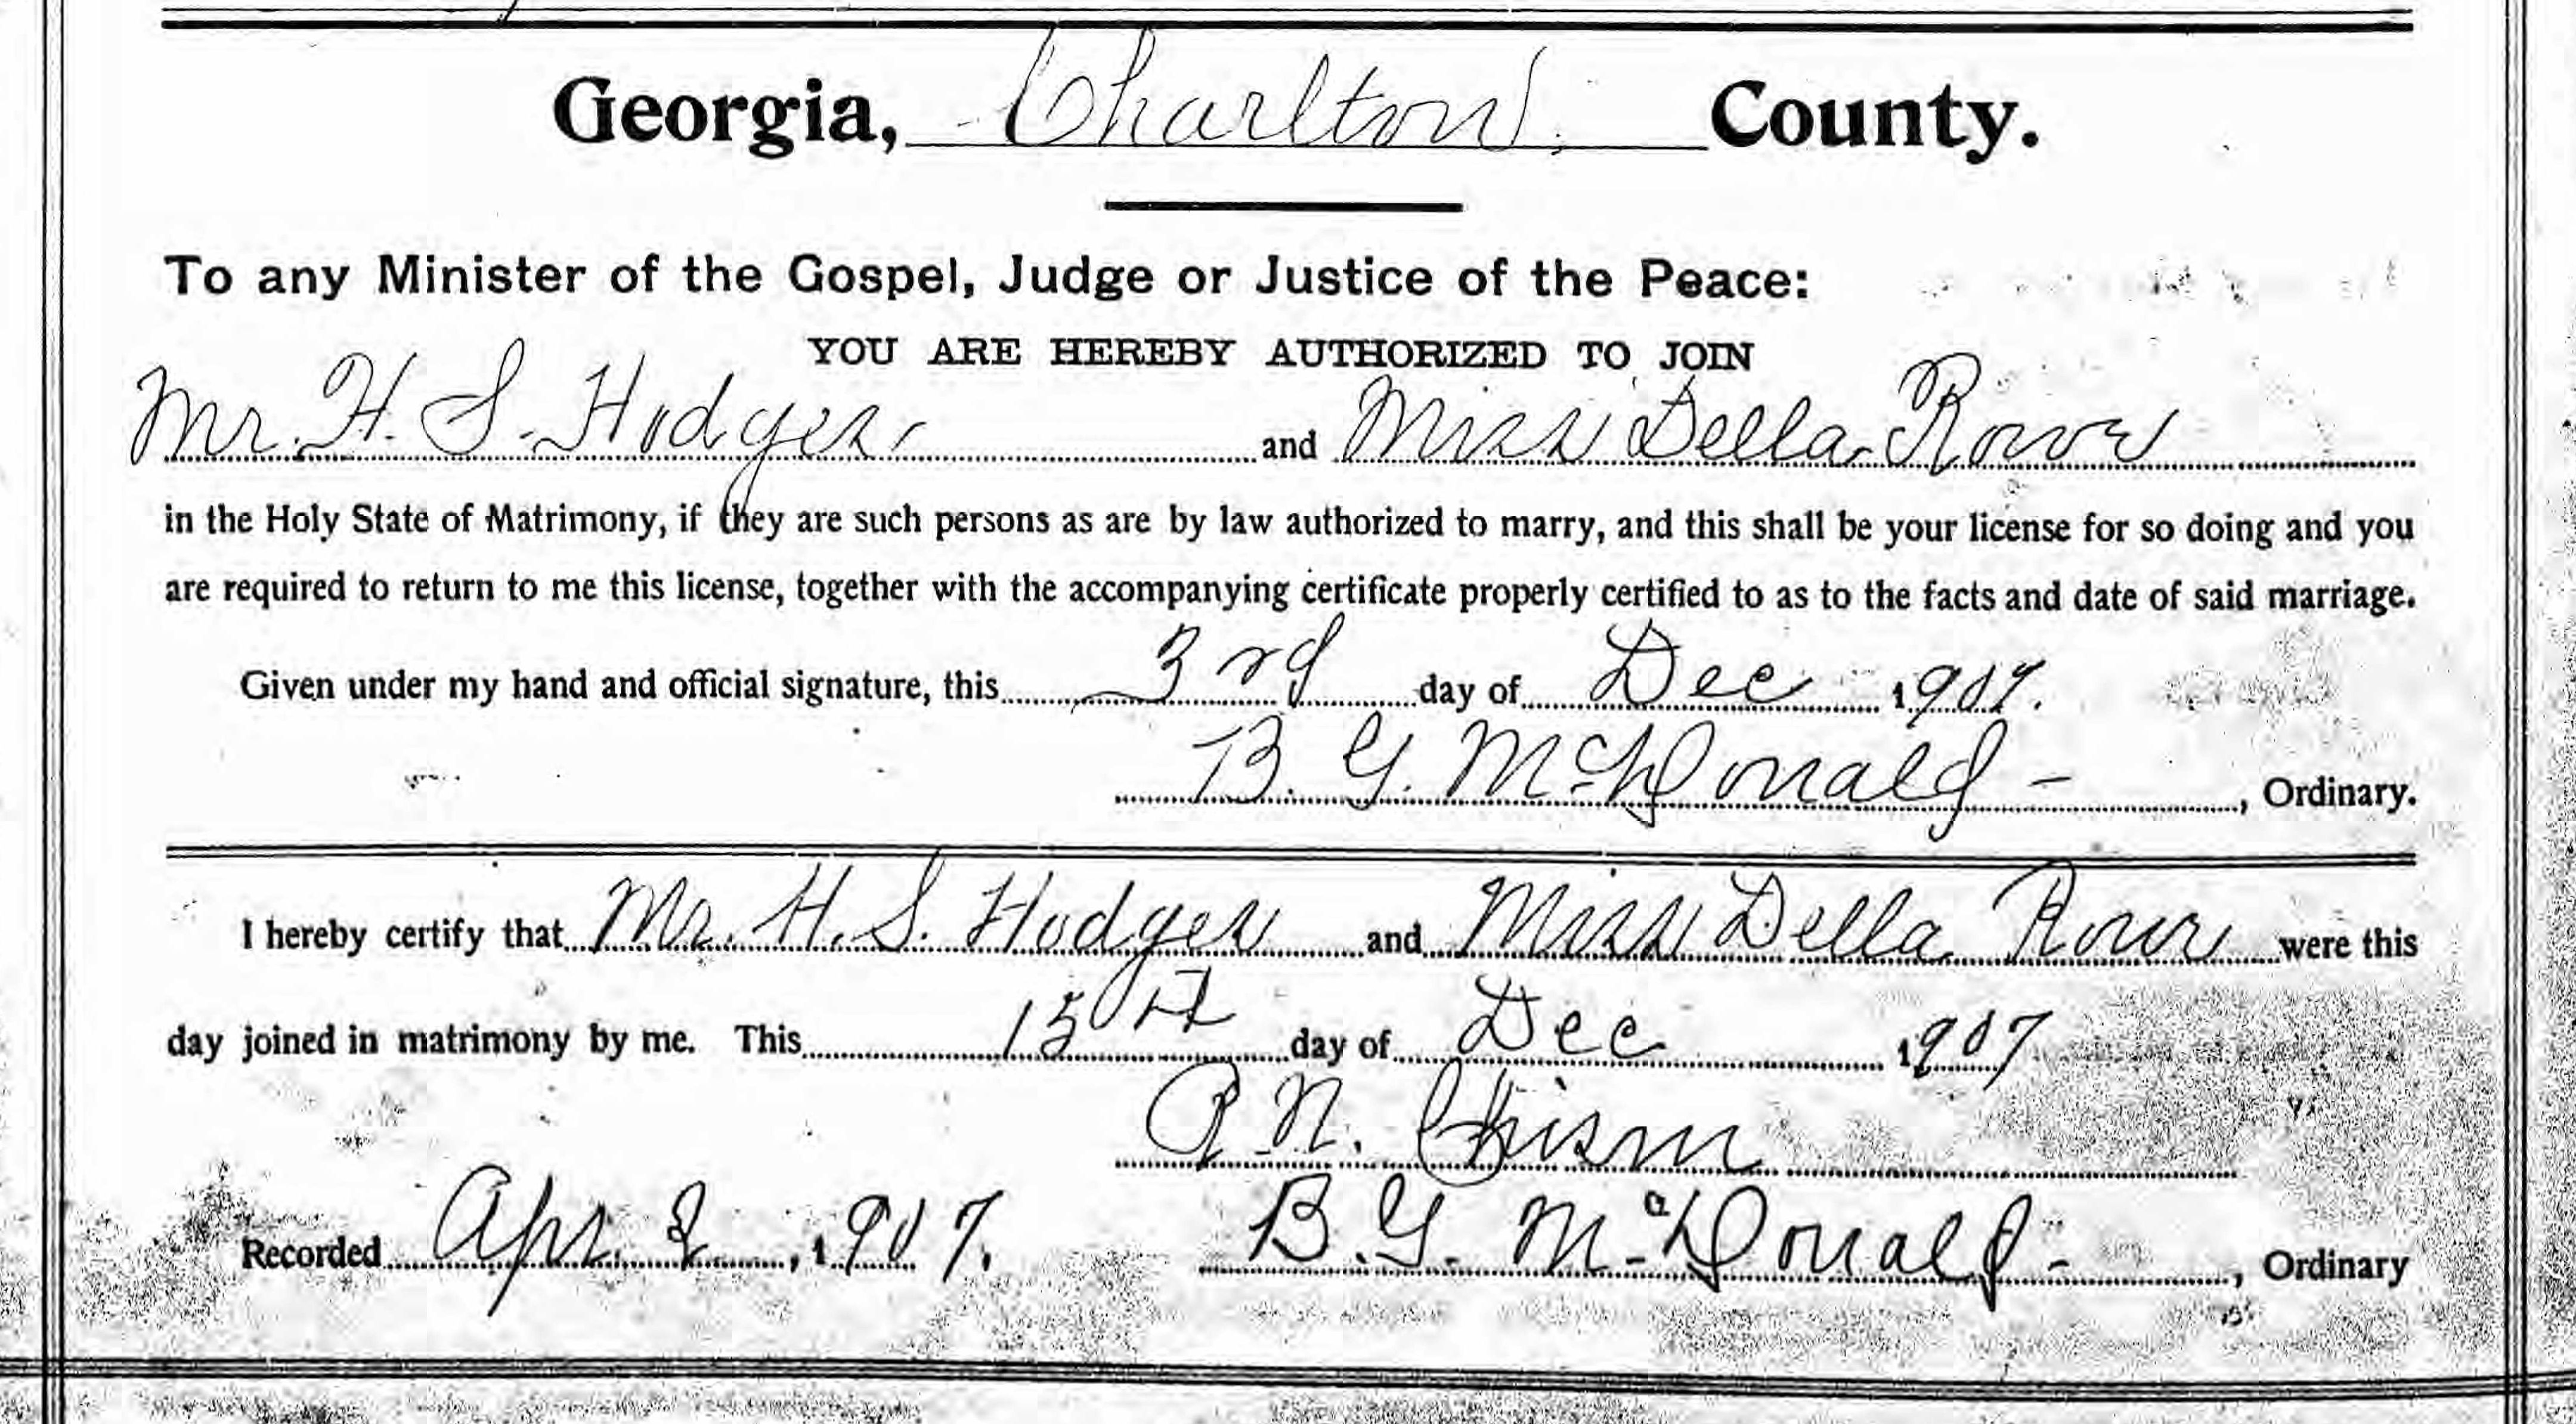 Georgia, Charlton County.
To any Minister of the Gospel, Judge or Justice of the Peace:
YOU ARE HEREBY AUTHORIZED TO JOIN
Mr. H. S. Hodges and Miss Della Rowe
in the Holy State of Matrimony, if they are such persons as are by law authorized to marry, and this shall be your license for so doing and you
are required to return to me this license, together with the accompanying certificate properly certified to as to the facts and date of said marriage.
Given under my hand and official signature, this 3rd day of Dec 1907.
B. G. McDonald - , Ordinary.
I hereby certify that Mr. H. S. Hodges and Miss Della Rowe were this
day joined in matrimony by me. This 15th day of Dec 1907
P. N. Chism
Recorded Apr. 2, 1907. B. G. McDonald - , Ordinary